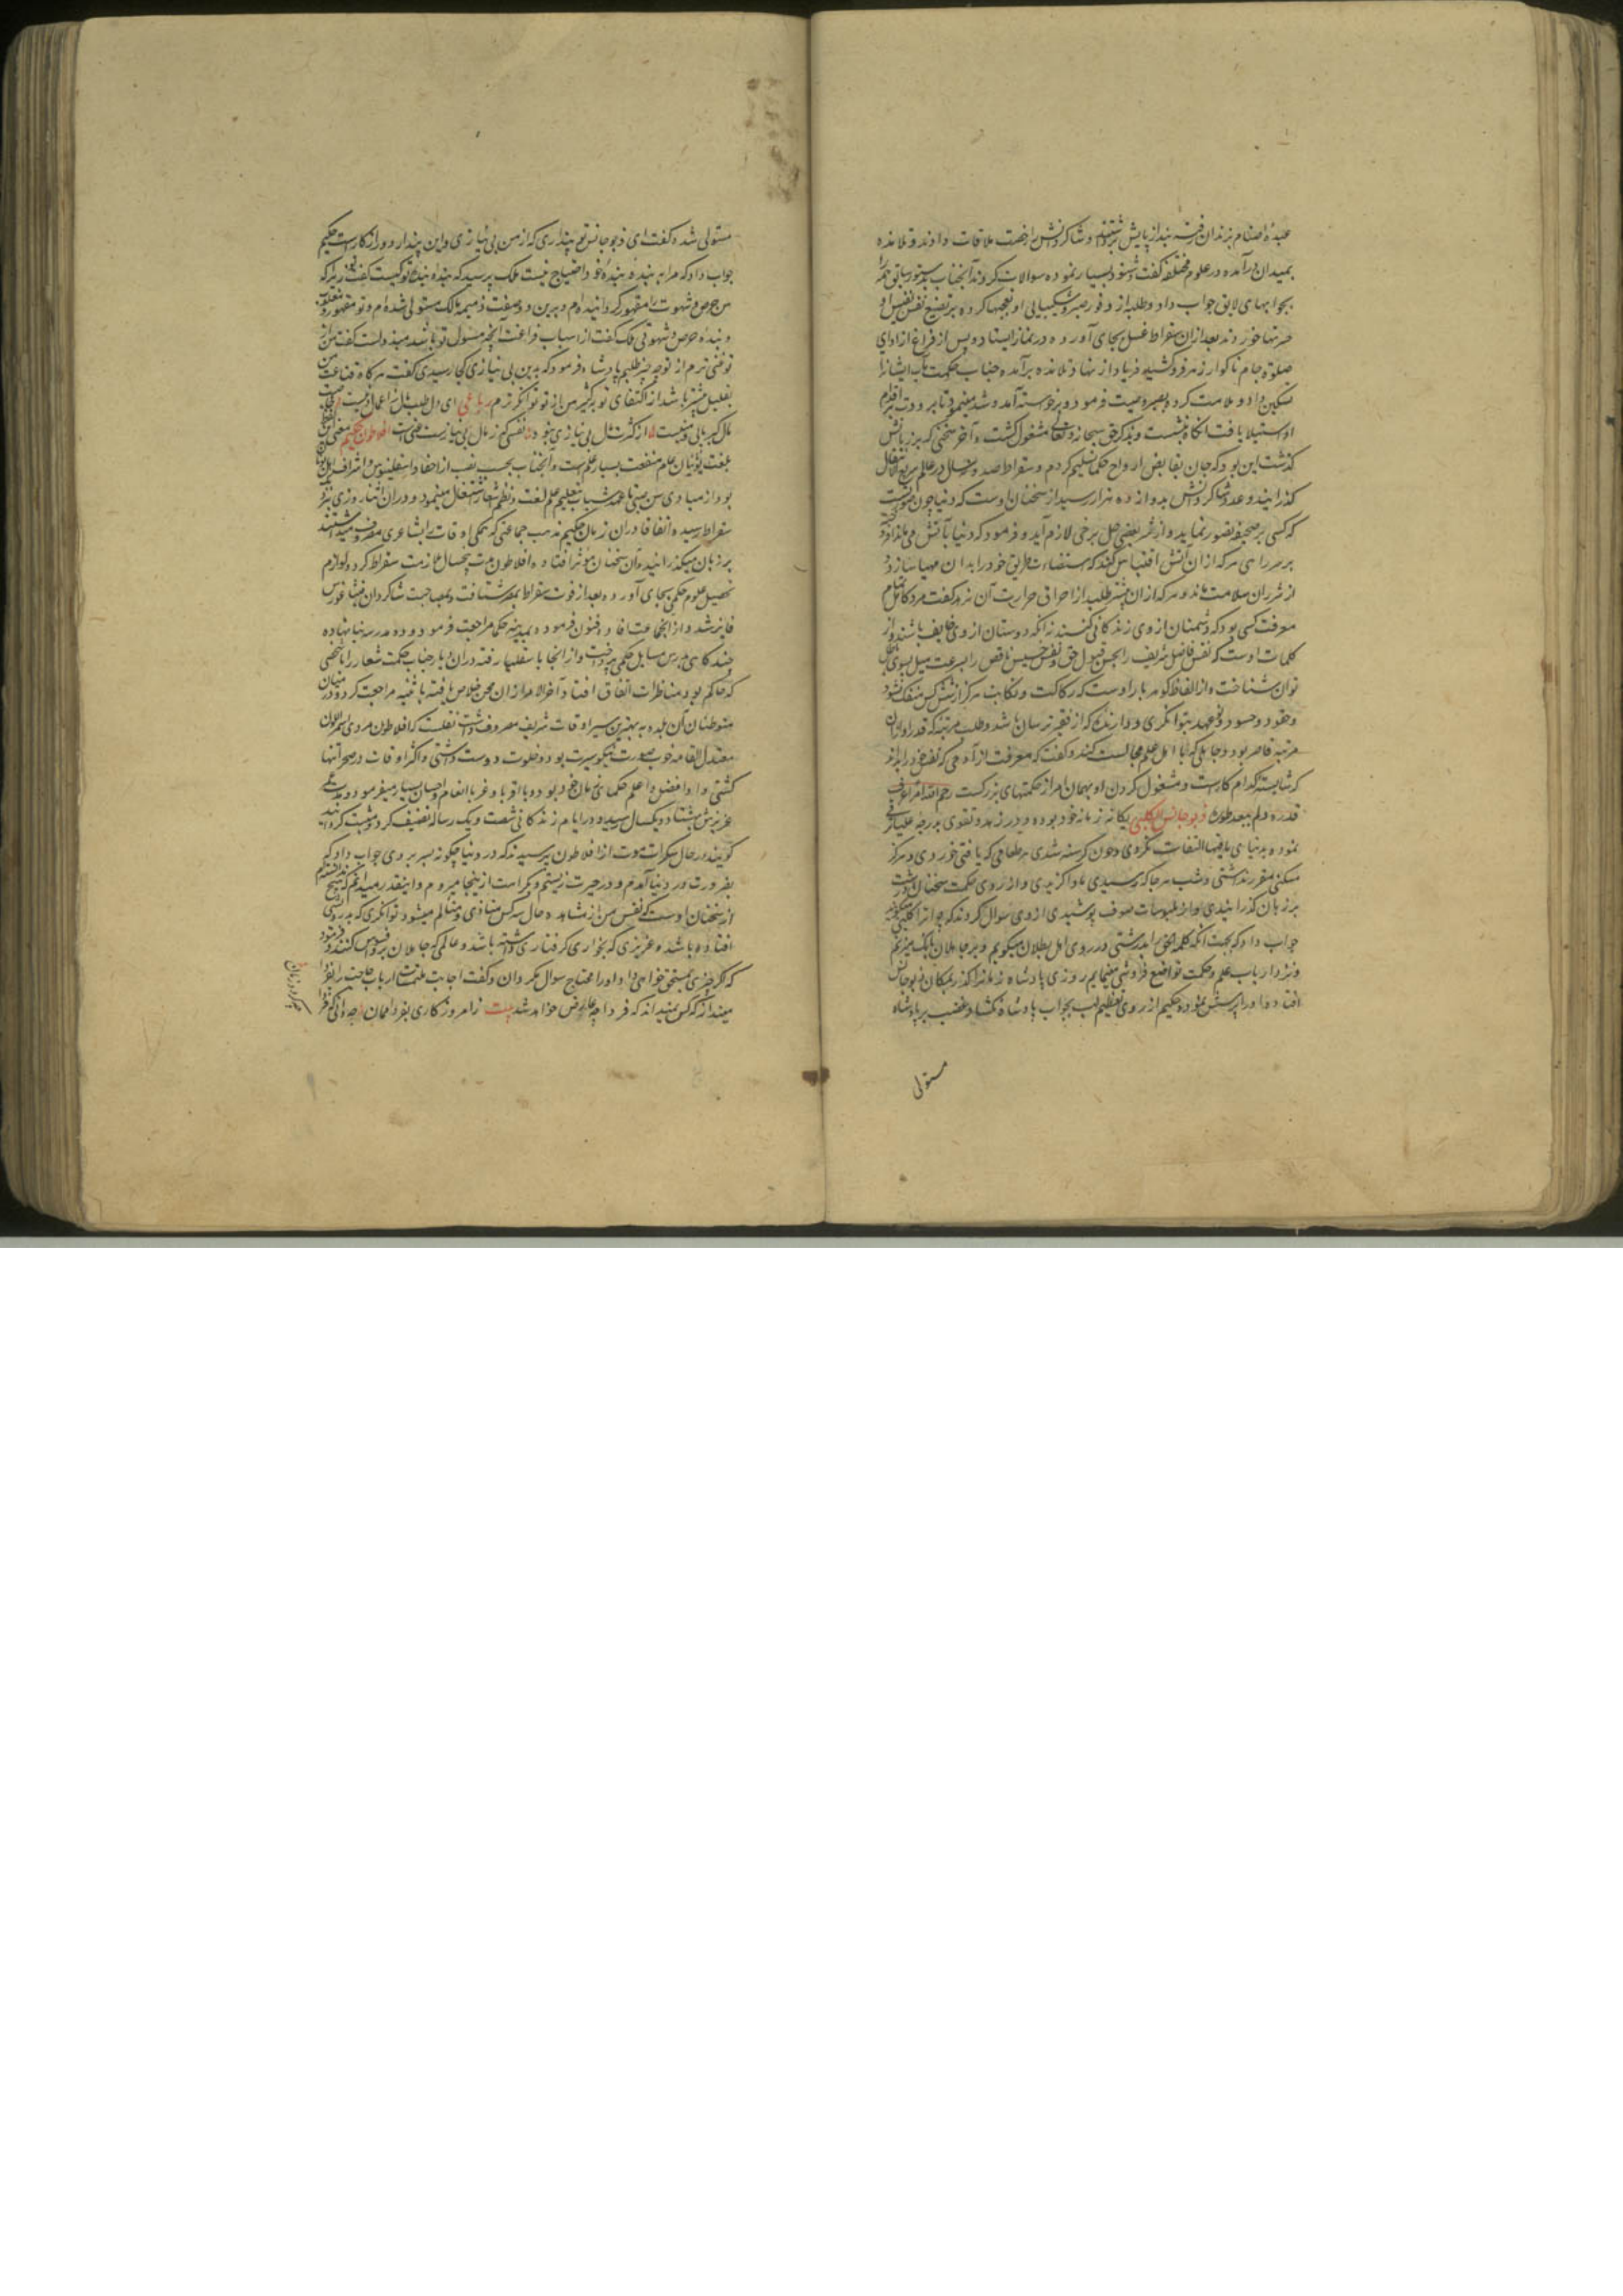 عبدهٔ اصنام بزندان رفته بند از پایش برداشتند و شاگردانش را رخصت ملاقات دادند و تلامذه
بمیدان درآمده در علوم مختلفه گفت و شنود بسیار نموده سوالات کردند آنجناب بدستور سابق همه را
بجوابهای لایق جواب داد و طلبه از وفور صبر و شکیبایی او تعجبها کرده بر تضییع نفس نفیس او
حسرتها خوردند بعد ازان سقراط غسل بجای آورده در نماز ایستاد و پس از فراغ از ادای
صلوة جام ناگوار زهر فروکشید فریاد از نهاد تلامذه برآمده جناب حکمت مآب ایشانرا
تسکین داد و ملامت کرد و بصبر وصیت فرمود و برخواسته آمد و شد مینمود تا برودت بر اقدام
او استیلا یافت آنگاه بنشست و بذکر حق سبحانه و تعالی مشغول گشت و آخر سخنی که بر زبانش
گذشت این بود که جان بقابض ارواح حکما تسلیم کردم و سقراط صد و سال در عالم سریع الانتقال
گذرانید و عدد شاگردانش بدوازده هزار رسید از سخنان اوست که دنیا چون صورتیست
که کسی بر صحیفه تصور نماید و از نشر بعضی طی برخی لازم آید و فرمود که دنیا بآتش می ماند افروخته
بر سر راهی هرکه ازان آتش اقتباس کند که استضاءت طریق خود را بدان مهیا سازد
از شر ان سلامت ماند و هرکه ازان بیشتر طلبد از احراق حرارت آن نرهد گفت مرد کامل تمام
معرفت کسی بود که دشمنان از وی زندگانی کنند نه آنکه دوستان از وی خایف باشند و از
کلمات اوست که نفس فاضل شریف را بحسن قبول حق و نفس خسیس ناقص را بسرعت میل بسوی باطل
توان شناخت و از الفاظ گوهربار اوست که رکاکت و نکایت هرگز از شش کس منفک نشود
حقود و حسود و نوعهد بتوانگری و دارنده که از فقر ترسان باشد و طالب مرتبه که قدر او ازان
مرتبه قاصر بود و جاهلی که با اهل علم مجالست کند و گفت که معرفت از آدمی که نفس خود را بداند
که شایسته کدام کارست و مشغول کردن او بهمان امر از حکمتهای بزرگست رحم الله امرأ عرف
قدره ولم یتعد طوره ذیوجانس الکلبی یگانه زمانه خود بوده و در زهد و تقوی بدرجه علیا ترقی
نموده بدنیا و مافیها التفات نکردی و چون گرسنه شدی هر طعامی که یافتی خوردی و هرگز
مسکنی مقرر نداشتی و شب هرجا که رسیدی ماوا گزیدی و از روی حکمت سخنان درشت
بر زبان گذرانیدی و از ملبوسات صوف پوشیدی ازوی سوال کردند که چرا ترا کلبی میگویند
جواب داد که بجهت آنکه کلمه الحق را بدرشتی در روی اهل بطلان میگویم و بر جاهلان بانک میزنم
و نزد ارباب علم و حکمت تواضع فروشی مینمایم روزی پادشاه زمانرا گذر بمکان ذیوجانس
افتاد و او را پرسش نموده حکیم از روی تعظیم لب بجواب پادشاه نگشاد و غضب بر پادشاه
مستولی
مستولی شده گفت ای ذیوجانس تو پنداری که از من بی نیازی و این پندار دور از کارست حکیم
جواب داد که مرا به بندهٔ بندهٔ خود احتیاج نیست ملک پرسید که بندهٔ بندهٔ تو کیست گفت تویی زیرا که
من حرص و شهوت را مقهور گردانیده ام و برین دو صفت ذمیمه مالک و مستولی شده ام و تو مقهور و مغلوب
و بندهٔ حرص و شهوتی ملک گفت از اسباب فراغت آنچه مسئول تو باشد مبذولست گفت من از
تو غنی ترم از تو چه چیز طلبم پادشاه فرمود که بدین بی نیازی کجا رسیدی گفت هرگاه قناعت من
بقلیل بیشتر باشد از اکتفای تو بکثیر من از تو توانگرترم رباعی ای دل طلب مال
از کثرت مال بی نیازی نبود نفسی کز مال بی نیازست غنی است افلاطون حکیم معنی این لفظ
بلغت یونانیان عام منفعت بسیار علم است و آنجناب بحسب نسب از احفاد اسقلینوس و اشراف اهل یونان
بود از مبادی سن صبی تا عهد شباب بتعلیم علم لغت و نظم اشعار اشتغال مینمود و دران اثنا روزی نزد
سقراط رسیده اتفاقا دران زمان حکیم مذمت جماعتی که همگی اوقات بانشاء شعر مصروف میداشتند
بر زبان میگذرانید و آن سخنان مؤثر افتاده افلاطون مدت پنجسال ملازمت سقراط کرده لوازم
تحصیل علوم حکمی بجای آورده بعد از فوت سقراط بمصر شتافت و بمصاحبت شاگردان فیثاغورس
فایز شد و از آنجماعت افاده فنون فرموده بمدینه حکما مراجعت فرمود و دو مدرسه بنا نهاده
چندگاهی بدرس مسایل حکمی پرداخت و از انجا باسقلیا رفته دران دیار جناب حکمت شعار را با شخصی
که حاکم بود مناظرات اتفاق افتاد و آخر الامر ازان محن خلاص یافته باثینیه مراجعت کرد و در میان
متوطنان آن بلده به بهترین سیر اوقات شریف مصروف داشت نقلست که افلاطون مردی اسمر اللون
معتدل القامه خوب صورت نیکو سیرت بود و خلوت دوست داشتی و اکثر اوقات در صحرا تنها
گشتی و او افضل و اعلم حکمای زمان خود بود و با اقربا و غربا انعام و احسان بسیار میفرمود و مدت عمر
عزیزش هشتاد و یکسال رسید و در ایام زندگانی شصت و یک رساله تصنیف کرد و مثبت گردانید
گویند در حال سکرات موت از افلاطون پرسیدند که در دنیا چگونه بسر بردی جواب داد که
بضرورت در دنیا آمدم و در حیرت زیستم و بکراهت از ینجا میروم و اینقدر میدانم که هیچ ندانستم
از سخنان اوست که نفس من از مشاهده حال سه کس متاذی و متالم میشود توانگری که بدرویشی
افتاده باشد و عزیزی که بخواری گرفتاری داشته باشد و عالمی که جاهلان بر و افسوس کنند و فرمود
که اگر چیزی بمستحق خواهی داد او را محتاج سوال مگردان و گفت اجابت ملتمسات ارباب حاجت را بفردا
مینداز که کس نمیداند که فردا چه عارض خواهد شد بیت زامروز کاری بفردا ممان چه دانی که فردا
چه گردد زمان